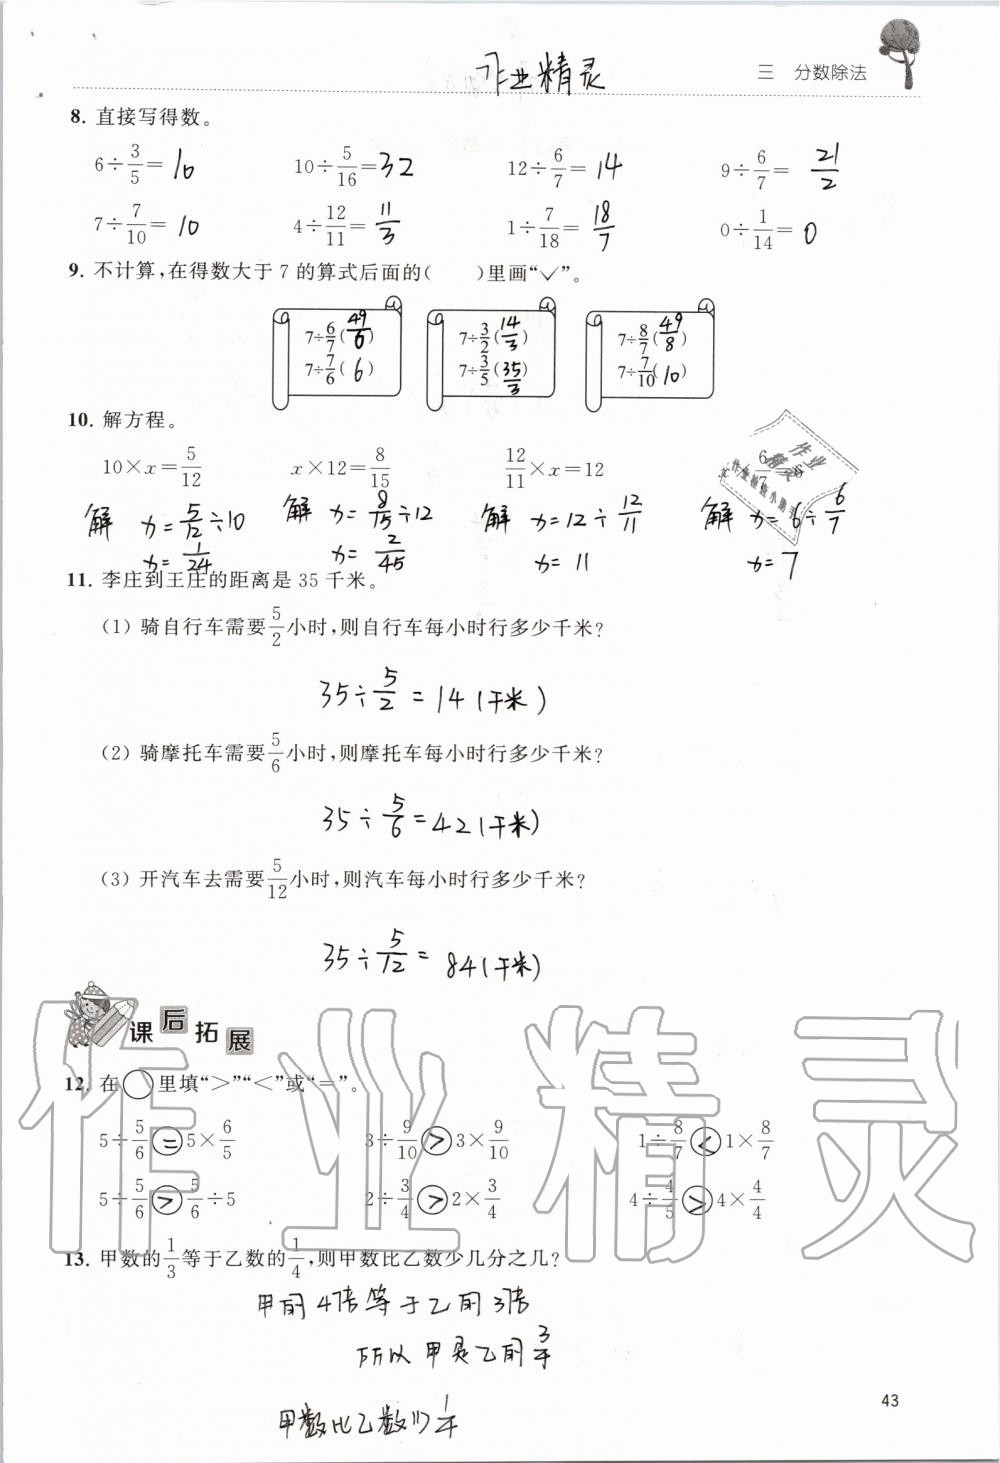 作业精灵
三 分数除法
8. 直接写得数。
6÷3/5=10 10÷5/16=32 12÷6/7=14 9÷6/7=21/2
7÷7/10=10 4÷12/11=11/3 1÷7/18=18/7 0÷1/14=0
9. 不计算,在得数大于7的算式后面的( )里画“✓”。
7÷6/7(49/6) 7÷3/2(14/3) 7÷8/7(49/8)
7÷7/6(6) 7÷3/5(35/3) 7÷7/10(10)
10. 解方程。
10×x=5/12 x×12=8/15 12/11×x=12 6/7
解 x=5/12÷10 解 x=8/15÷12 解 x=12÷12/11 解 x=6÷6/7
x=1/24 x=2/45 x=11 x=7
11. 李庄到王庄的距离是35千米。
(1) 骑自行车需要5/2小时,则自行车每小时行多少千米?
35÷5/2=14(千米)
(2) 骑摩托车需要5/6小时,则摩托车每小时行多少千米?
35÷5/6=42(千米)
(3) 开汽车去需要5/12小时,则汽车每小时行多少千米?
35÷5/12=84(千米)
课后拓展
12. 在○里填“>”“<”或“=”。
5÷5/6=5×6/5 3÷9/10>3×9/10 1÷8/7<1×8/7
5÷5/6>5/6÷5 2÷3/4>2×3/4 4÷4/5>4×4/4
13. 甲数的1/3等于乙数的1/4,则甲数比乙数少几分之几?
甲的4倍等于乙的3倍
所以甲是乙的3/4
甲数比乙数少1/4
43
作业精灵
作业
精灵